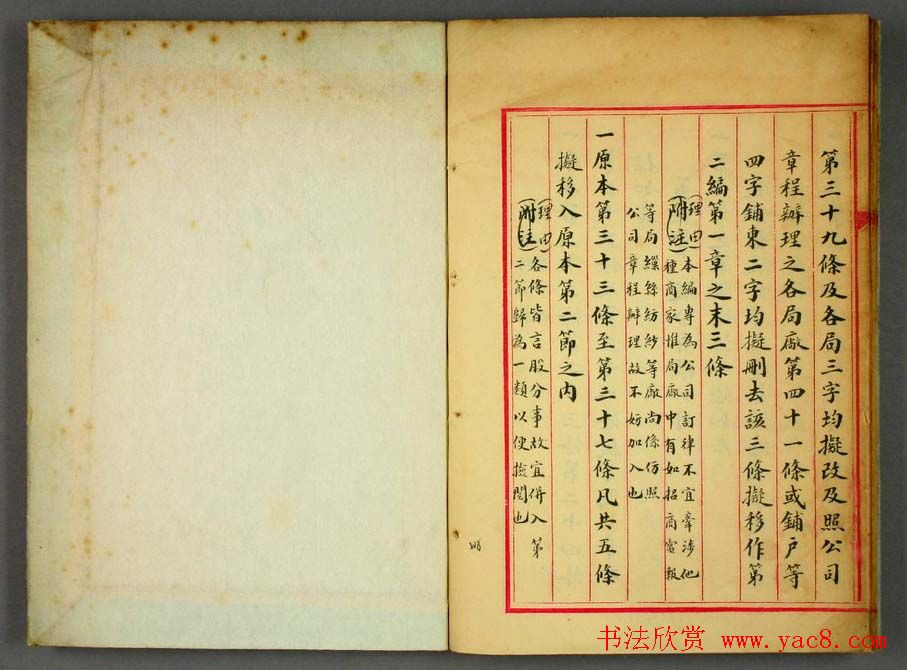 第三十九條及各局三字均擬改及照公司
章程辦理之各局廠第四十一條或鋪戶等
四字鋪東二字均擬刪去該三條擬移作第
二編第一章之末三條
(理由)
(附注)
本編專為公司訂律不宜牽涉他
種商家惟局廠中有如招商電報
等局繅絲紡紗等廠尚係仿照
公司章程辦理故不妨加入也
一原本第三十三條至第三十七條凡共五條
擬移入原本第二節之內
(理由)
(附注)
各條皆言股分事故宜併入第
二節歸為一類以便檢閱也
书法欣赏 www.yac8.com